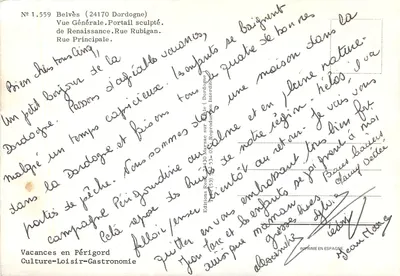 Nº 1.559 Belvès (24170 Dordogne)
Vue Générale.Portail sculpté.
de Renaissance.Rue Rubigan.
Rue Principale.
Bien chers tous cinq!
Un petit bonjour de la
Dordogne. Passons d'agréables vacances,
malgré un temps capricieux. Les enfants se baignent
dans la Dordogne et faisons tous les quatre de bonnes
parties de pêche. Nous sommes dans une maison dans la
campagne Périgourdine au calme et en pleine nature.
Celà repose du bruit de notre région. hélas, il va
falloir penser bientôt au retour. Je vais vous
quitter en vous embrassant tous bien fort
Jean Marc et les enfants se joignent à moi
ainsi que maman
grosses bises
Bons baisers
Jean Marc
Vacances en Périgord
Culture-Loisir-Gastronomie
IMPRIMÉ EN ESPAGNE